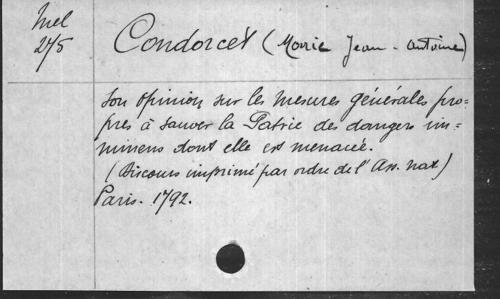 Mel
275
Condorcet (Marie Jean-Antoine)
Son opinion sur les mesures générales pro=
pres à sauver la Patrie des dangers im-
minens dont elle est menacée.
(Discours imprimé par ordre de l'Ass. nat)
Paris. 1792.